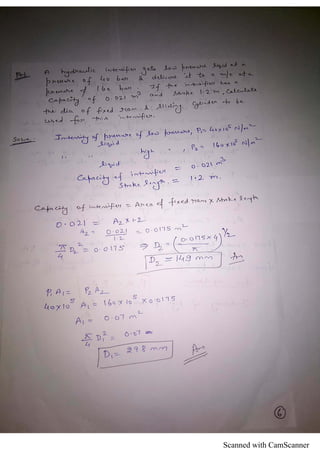 A hydraulic intensifier gets low pressure liquid at a
pressure of 40 bar & delivers it to a m/c at a
pressure of 160 bar, If the intensifier has a
Capacity of 0.021 m³ and stroke 1.2 m, Calculate
the dia. of fixed ram & sliding cylinder to be
used for this intensifier.
Soln. Intensity of pressure of low pressure, P₁ = 40x10⁵ N/m²
liquid
" " high " , P₂ = 160x10⁵ N/m²
liquid
Capacity of intensifier = 0.021 m³
Stroke length = 1.2 m.
Capacity of intensifier = Area of fixed ram x stroke length
0.021 = A₂ x 1.2
A₂ = 0.021 / 1.2 = 0.0175 m²
π/4 D₂² = 0.0175 ⇒ D₂ = (0.0175x4 / π)^½
D₂ = 149 mm An
P₁A₁ = P₂A₂
40x10⁵ A₁ = 160x10⁵ x 0.0175
A₁ = 0.07 m²
π/4 D₁² = 0.07
D₁ = 298 mm Ans
6
Scanned with CamScanner